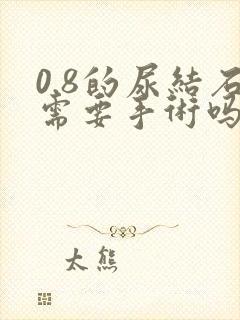 0.8的尿結石
需要手術吗
太熊